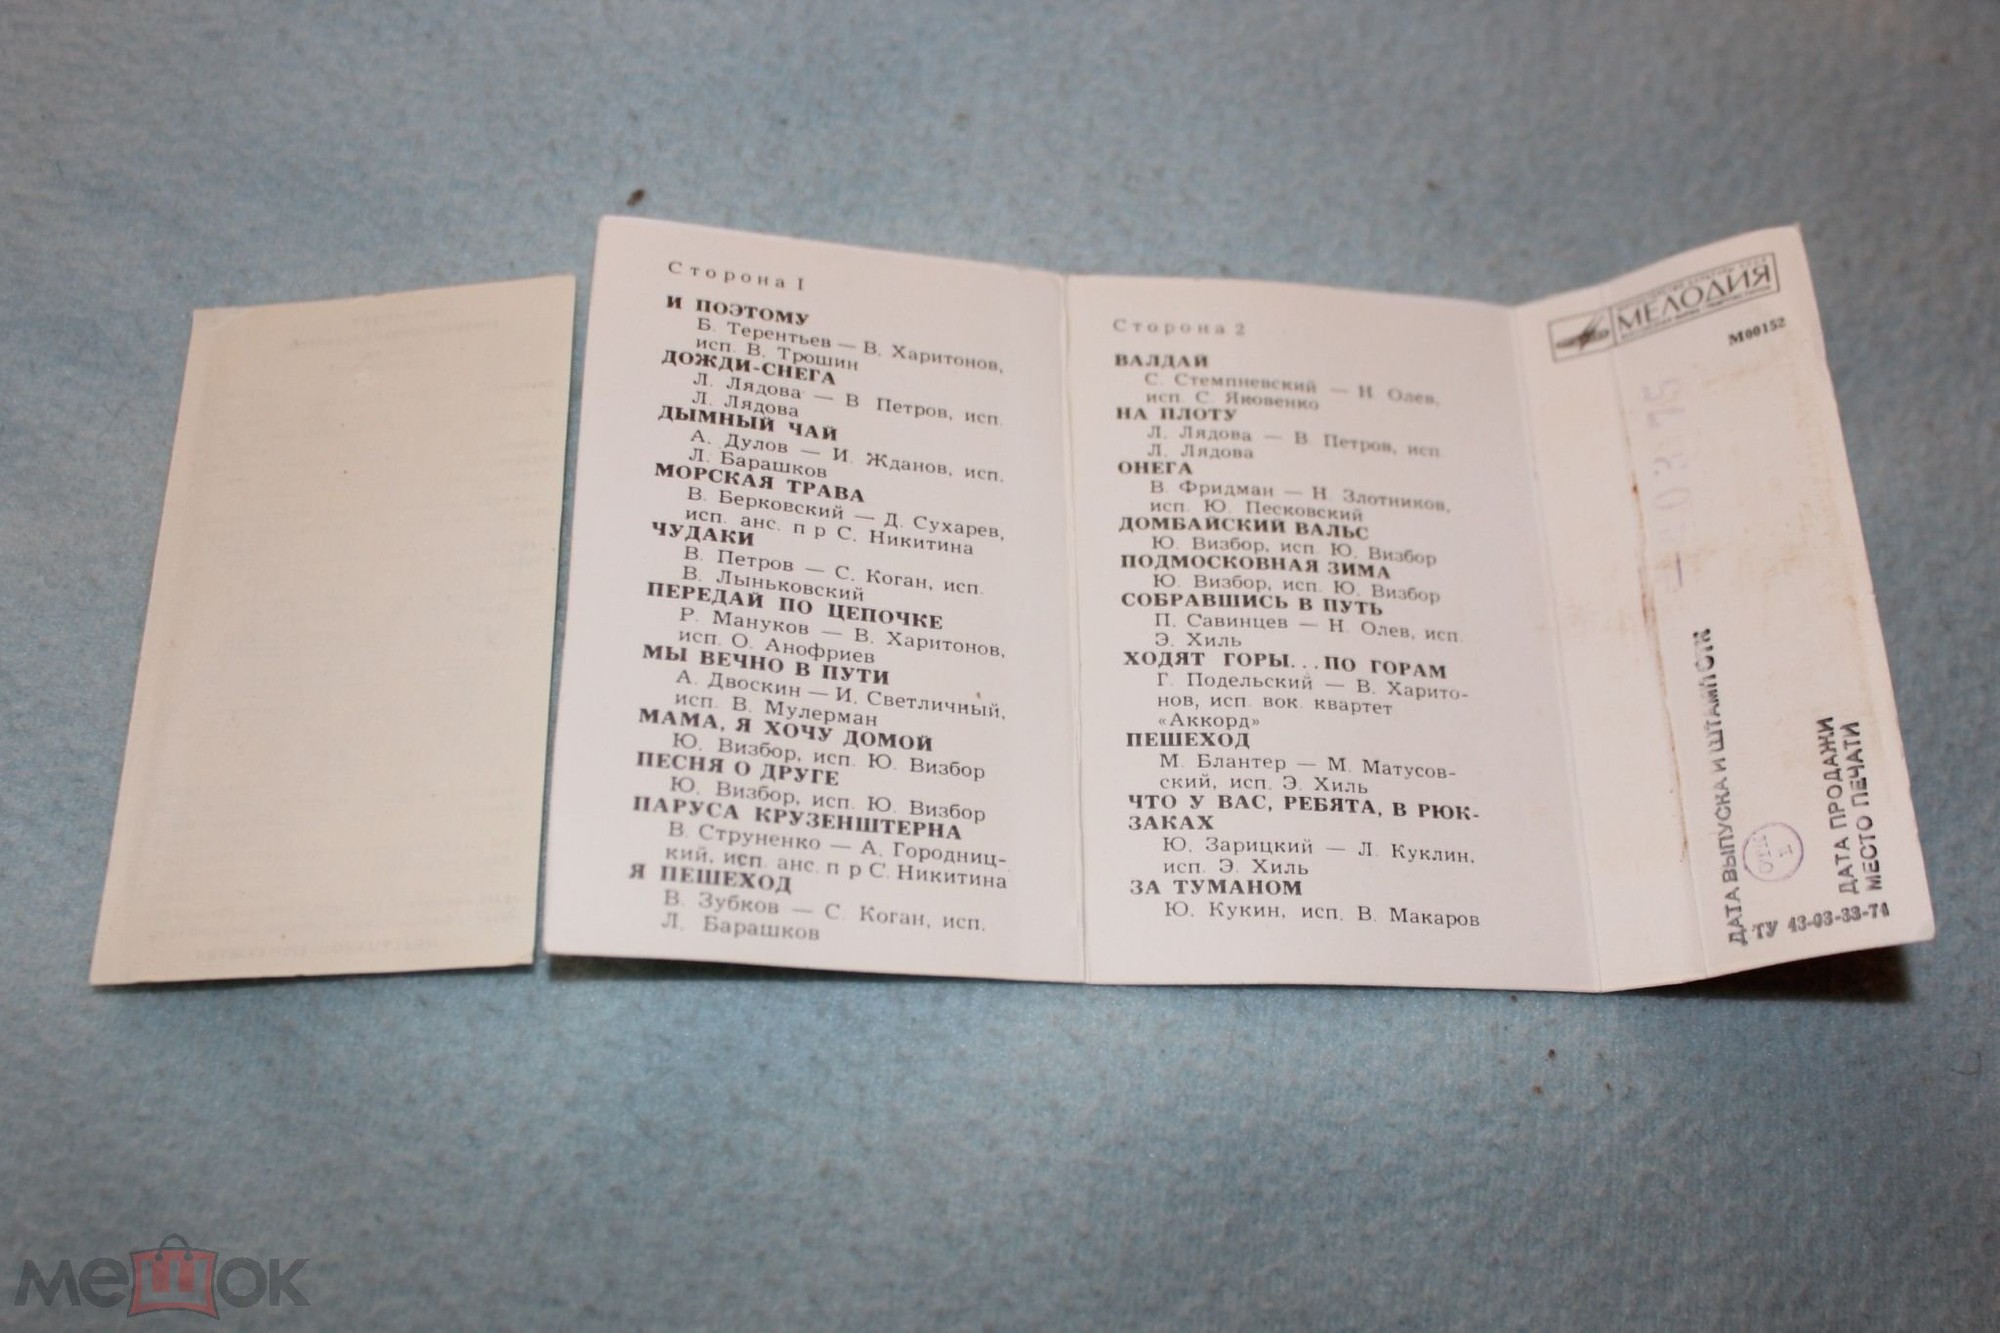 Сторона 1
И ПОЭТОМУ
Б. Терентьев — В. Харитонов,
исп. В. Трошин
ДОЖДИ-СНЕГА
Л. Лядова — В Петров, исп.
Л. Лядова
ДЫМНЫЙ ЧАЙ
А. Дулов — И. Жданов, исп.
Л. Барашков
МОРСКАЯ ТРАВА
В. Берковский — Д. Сухарев,
исп. анс. п р С. Никитина
ЧУДАКИ
В. Петров — С. Коган, исп.
В. Лыньковский
ПЕРЕДАЙ ПО ЦЕПОЧКЕ
Р. Мануков — В. Харитонов,
исп. О. Анофриев
МЫ ВЕЧНО В ПУТИ
А. Двоскин — И. Светличный,
исп. В. Мулерман
МАМА, Я ХОЧУ ДОМОЙ
Ю. Визбор, исп. Ю. Визбор
ПЕСНЯ О ДРУГЕ
Ю. Визбор, исп. Ю. Визбор
ПАРУСА КРУЗЕНШТЕРНА
В. Струненко — А. Городниц-
кий, исп. анс. п р С. Никитина
Я ПЕШЕХОД
В. Зубков — С. Коган, исп.
Л. Барашков
Сторона 2
ВАЛДАЙ
С. Стемпневский — Н. Олев,
исп. С. Яковенко
НА ПЛОТУ
Л. Лядова — В. Петров, исп.
Л. Лядова
ОНЕГА
В. Фридман — Н. Злотников,
исп. Ю. Песковский
ДОМБАЙСКИЙ ВАЛЬС
Ю. Визбор, исп. Ю. Визбор
ПОДМОСКОВНАЯ ЗИМА
Ю. Визбор, исп. Ю. Визбор
СОБРАВШИСЬ В ПУТЬ
П. Савинцев — Н. Олев, исп.
Э. Хиль
ХОДЯТ ГОРЫ...ПО ГОРАМ
Г. Подельский — В. Харито-
нов, исп. вок. квартет
«Аккорд»
ПЕШЕХОД
М. Блантер — М. Матусов-
ский, исп. Э. Хиль
ЧТО У ВАС, РЕБЯТА, В РЮК-
ЗАКАХ
Ю. Зарицкий — Л. Куклин,
исп. Э. Хиль
ЗА ТУМАНОМ
Ю. Кукин, исп. В. Макаров
МЕЛОДИЯ
М00152
ДАТА ВЫПУСКА И ШТАМП ОТК
ДАТА ПРОДАЖИ
МЕСТО ПЕЧАТИ
ТУ 43-03-33-74
мешок